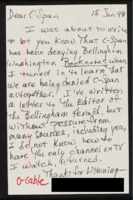 Dear C-Span 15 Jan 98
I was about to write
to let you know that C-Span
has been denying Bellingham
Washington Booknotes when
I tuned in to learn that
we are being denied C-Span
altogether. I've written
a letter to the Editor of
the Bellingham Herald, but
without pressure from
many sources, including you,
I do not know how to
have the only channel on TV
I watch, returned.
Thanks for listening